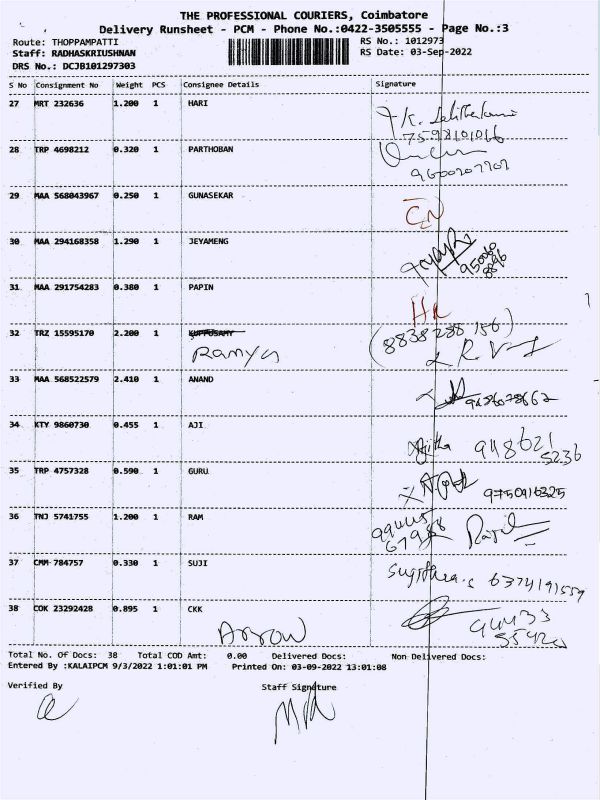 THE PROFESSIONAL COURIERS, Coimbatore
Delivery Runsheet - PCM - Phone No.:0422-3505555 - Page No.:3
Route: THOPPAMPATTI RS No.: 1012973
Staff: RADHASKRIUSHNAN RS Date: 03-Sep-2022
DRS No.: DCJB101297303
S No Consignment No Weight PCS Consignee Details Signature
27 MRT 232636 1.200 1 HARI
7598101016
28 TRP 4698212 0.320 1 PARTHOBAN
9600207702
29 MAA 568043967 0.250 1 GUNASEKAR
30 MAA 294168358 1.290 1 JEYAMENG
950060
8896
31 MAA 291754283 0.380 1 PAPIN
32 TRZ 15595170 2.200 1 KUPPUSAMY
Ramya
(8838288 156)
33 MAA 568522579 2.410 1 ANAND
34 KTY 9860730 0.455 1 AJI
Ajitha 948621
5236
35 TRP 4757328 0.590 1 GURU
9750916325
36 TNJ 5741755 1.200 1 RAM
37 CMM 784757 0.330 1 SUJI
6374191559
38 COK 23292428 0.895 1 CKK
Arrow
Total No. Of Docs: 38 Total COD Amt: 0.00 Delivered Docs: Non Delivered Docs:
Entered By :KALAIPCM 9/3/2022 1:01:01 PM Printed On: 03-09-2022 13:01:08
Verified By Staff Signature